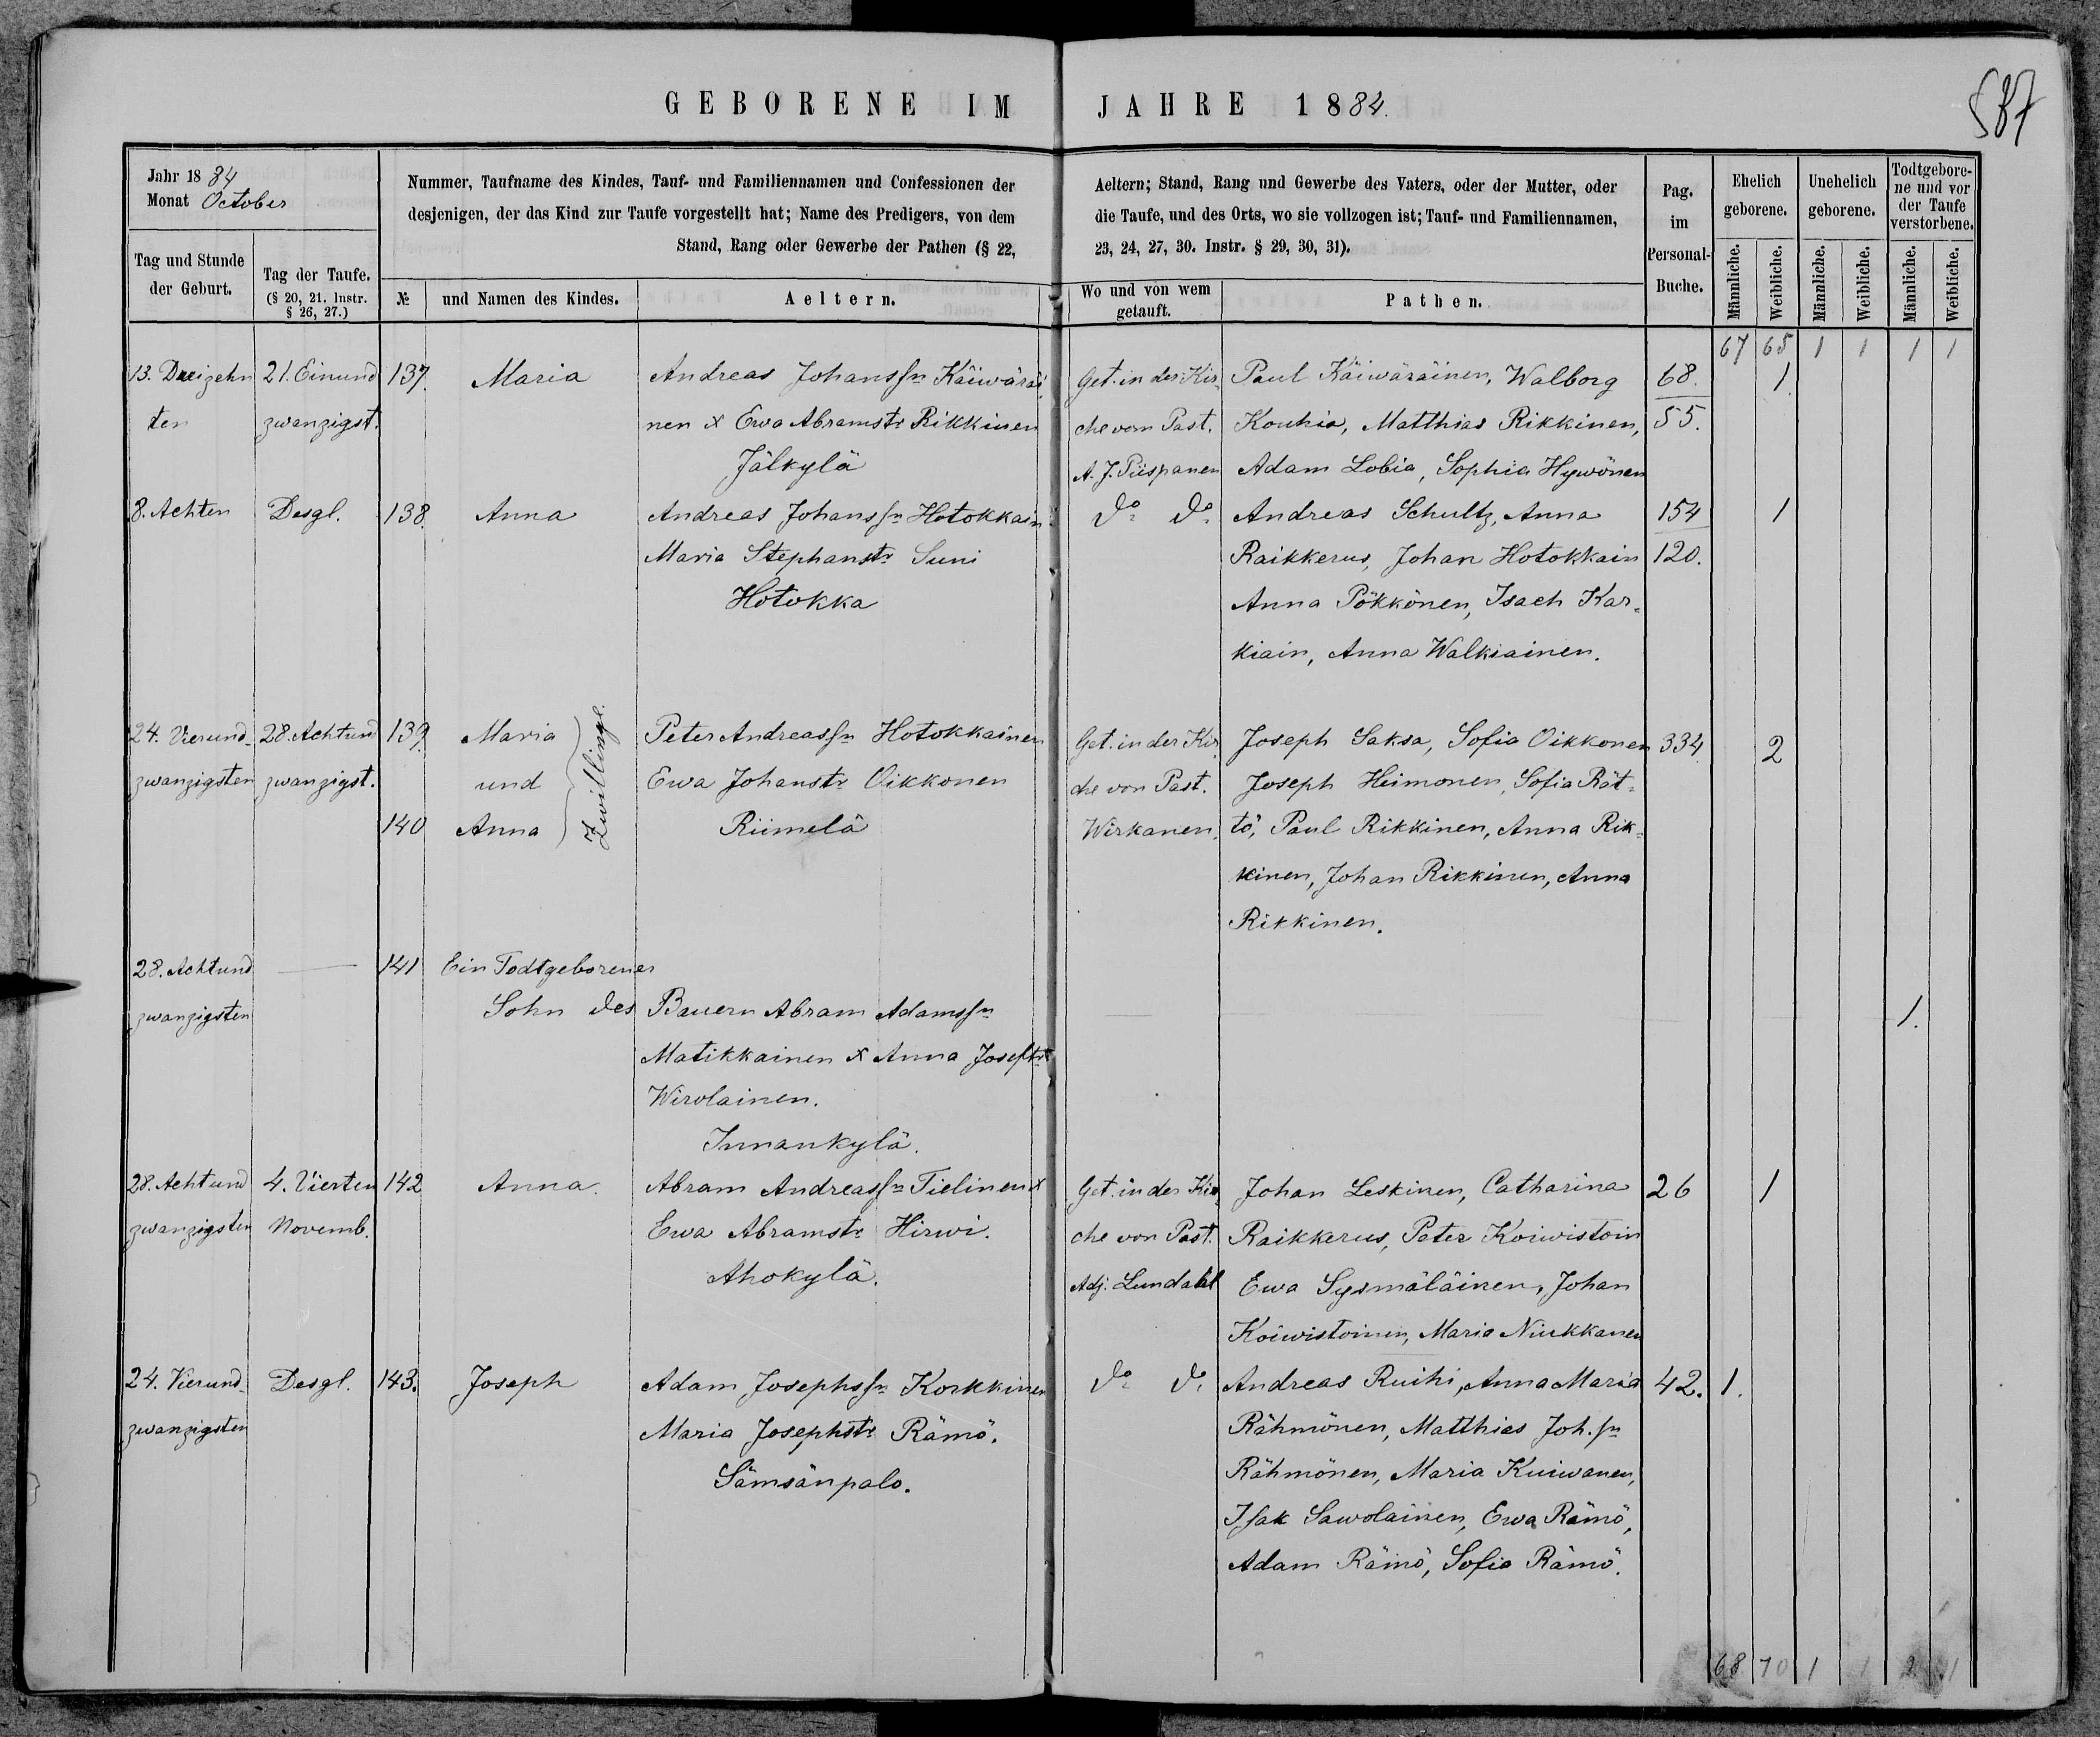 GEBORENE IM JAHRE 1884.
587
Jahr 1884
Monat October
Nummer, Taufname des Kindes, Tauf- und Familiennamen und Confessionen der
desjenigen, der das Kind zur Taufe vorgestellt hat; Name des Predigers, von dem
Stand, Rang oder Gewerbe der Pathen (§ 22,
Aeltern; Stand, Rang und Gewerbe des Vaters, oder der Mutter, oder
die Taufe, und des Orts, wo sie vollzogen ist; Tauf- und Familiennamen,
23, 24, 27, 30. Instr. § 29, 30, 31).
Tag und Stunde
der Geburt.
Tag der Taufe.
(§ 20, 21. Instr.
§ 26, 27.)
№
und Namen des Kindes.
Aeltern.
Wo und von wem
getauft.
Pathen.
Pag.
im
Personal-
Buche.
Ehelich
geborene.
Unehelich
geborene.
Todtgebore-
ne und vor
der Taufe
verstorbene.
Männliche.
Weibliche.
Männliche.
Weibliche.
Männliche.
Weibliche.
67 65 1 1 1 1
13. Dreizehn
ten
21. Einund
zwanzigst.
137.
Maria
Andreas Johanssn Käiwäräi
nen x Ewa Abramstr Rikkinen
Jälkylä
Get. in der Kir-
che vom Past.
A. J. Piispanen
Paul Käiwäräinen, Walborg
Kouhia, Matthias Rikkinen,
Adam Lobia, Sophia Hywönen
68.
55.
1
8. Achten
Desgl.
138.
Anna
Andreas Johanssn Hotokkain
Maria Stephanstr Suni
Hotokka
do do
Andreas Schultz, Anna
Raikkerus, Johan Hotokkain
Anna Pökkönen, Isach Kar-
kiain, Anna Walkiainen.
154
120.
1
24. Vierund-
zwanzigsten
28. Achtund
zwanzigst.
139.
Maria
und
140
Anna
Zwillinge.
Peter Andreassn Hotokkainen
Ewa Johanstr Oikkonen
Riimelä
Get. in der Kir
che von Past.
Wirkanen.
Joseph Saksa, Sofia Oikkonen
Joseph Heimonen, Sofia Rät-
tö, Paul Rikkinen, Anna Rik-
kinen, Johan Rikkinen, Anna
Rikkinen.
334
2
28. Achtund
zwanzigsten
141
Ein Todtgeborener
Sohn des
Bauern Abram Adamssn
Matikkainen x Anna Josefstr
Wirolainen.
Innankylä.
1.
28. Achtund
zwanzigsten
4. Vierten
Novemb.
142
Anna.
Abram Andreassn Tielinen x
Ewa Abramstr Hirwi.
Ahokylä.
Get. in der Kir
che von Past.
Adj. Lundahl
Johan Leskinen, Catharina
Raikkerus, Peter Koiwistoin
Ewa Sysmäläinen, Johan
Koiwistoinen, Maria Niukkanen
26
1
24. Vierund-
zwanzigsten
Desgl.
143.
Joseph
Adam Josephssn Korkkinen
Maria Josephstr Rämö.
Sämsänpalo.
do do
Andreas Ruihi, Anna Maria
Rähmönen, Matthias Joh.sn
Rähmönen, Maria Kuiwanen,
Isak Sawolainen, Ewa Rämö,
Adam Rämö, Sofia Rämö.
42.
1.
68 70 1 1 2 1